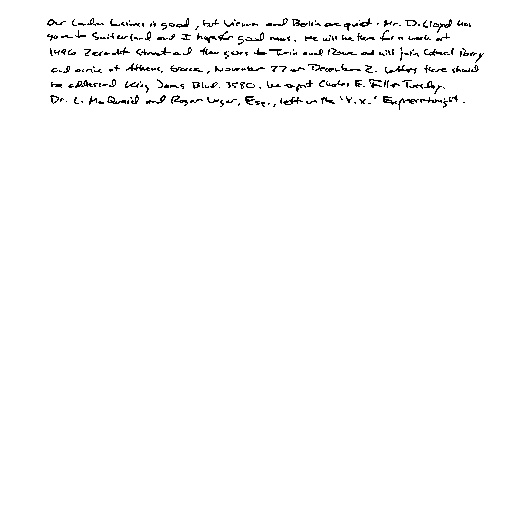 Our London business is good, but Vienna and Berlin are quiet. Mr. D. Lloyd has
gone to Switzerland and I hope for good news. He will be there for a week at
1496 Zermatt Street and then goes to Turin and Rome and will join Colonel Parry
and arrive at Athens, Greece, November 27 or December 2. Letters there should
be addressed King James Blvd. 3580. We expect Charles E. Fuller Tuesday.
Dr. L. McQuaid and Roger Unger, Esq., left on the 'Y.X.' Express tonight.